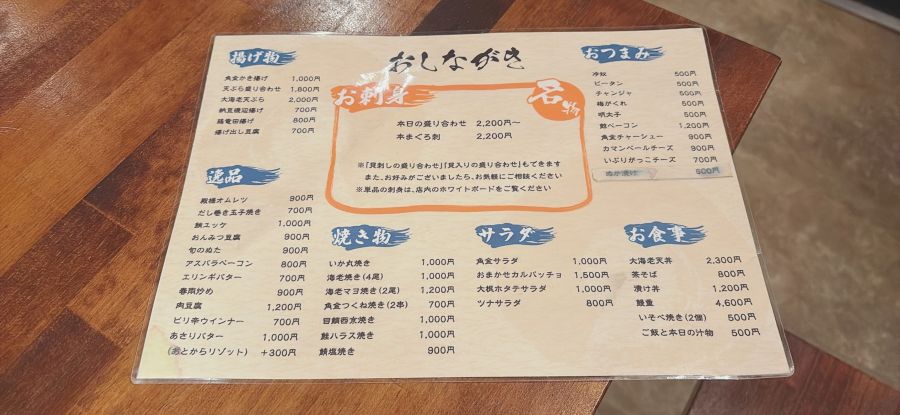 おしながき
揚げ物
角金かき揚げ 1,000円
天ぷら盛り合わせ 1,800円
大海老天ぷら 2,000円
納豆磯辺揚げ 700円
鶏竜田揚げ 800円
揚げ出し豆腐 700円
お刺身
名物
本日の盛り合わせ 2,200円～
本まぐろ刺 2,200円
※「貝刺しの盛り合わせ」「貝入りの盛り合わせ」もできます
また、お好みがございましたら、お気軽にご相談ください
※単品の刺身は、店内のホワイトボードをご覧ください
おつまみ
冷奴 500円
ピータン 500円
チャンジャ 500円
梅がくれ 500円
明太子 500円
鮭ベーコン 1,200円
角金チャーシュー 900円
カマンベールチーズ 900円
いぶりがっこチーズ 700円
ぬか漬け 500円
逸品
殿様オムレツ 900円
だし巻き玉子焼き 700円
鯛ユッケ 1,000円
おんみつ豆腐 900円
旬のぬた 900円
アスパラベーコン 800円
エリンギバター 700円
春雨炒め 900円
肉豆腐 1,200円
ピリ辛ウインナー 700円
あさりバター 1,000円
(あとからリゾット) +300円
焼き物
いか丸焼き 1,000円
海老焼き(4尾) 1,000円
海老マヨ焼き(2尾) 1,200円
角金つくね焼き(2串) 700円
目鯛西京焼き 1,000円
鮭ハラス焼き 1,000円
鯖塩焼き 900円
サラダ
角金サラダ 1,000円
おまかせカルパッチョ 1,500円
大根ホタテサラダ 1,000円
ツナサラダ 800円
お食事
大海老天丼 2,300円
茶そば 800円
漬け丼 1,200円
鰻重 4,600円
いそべ焼き(2個) 500円
ご飯と本日の汁物 500円